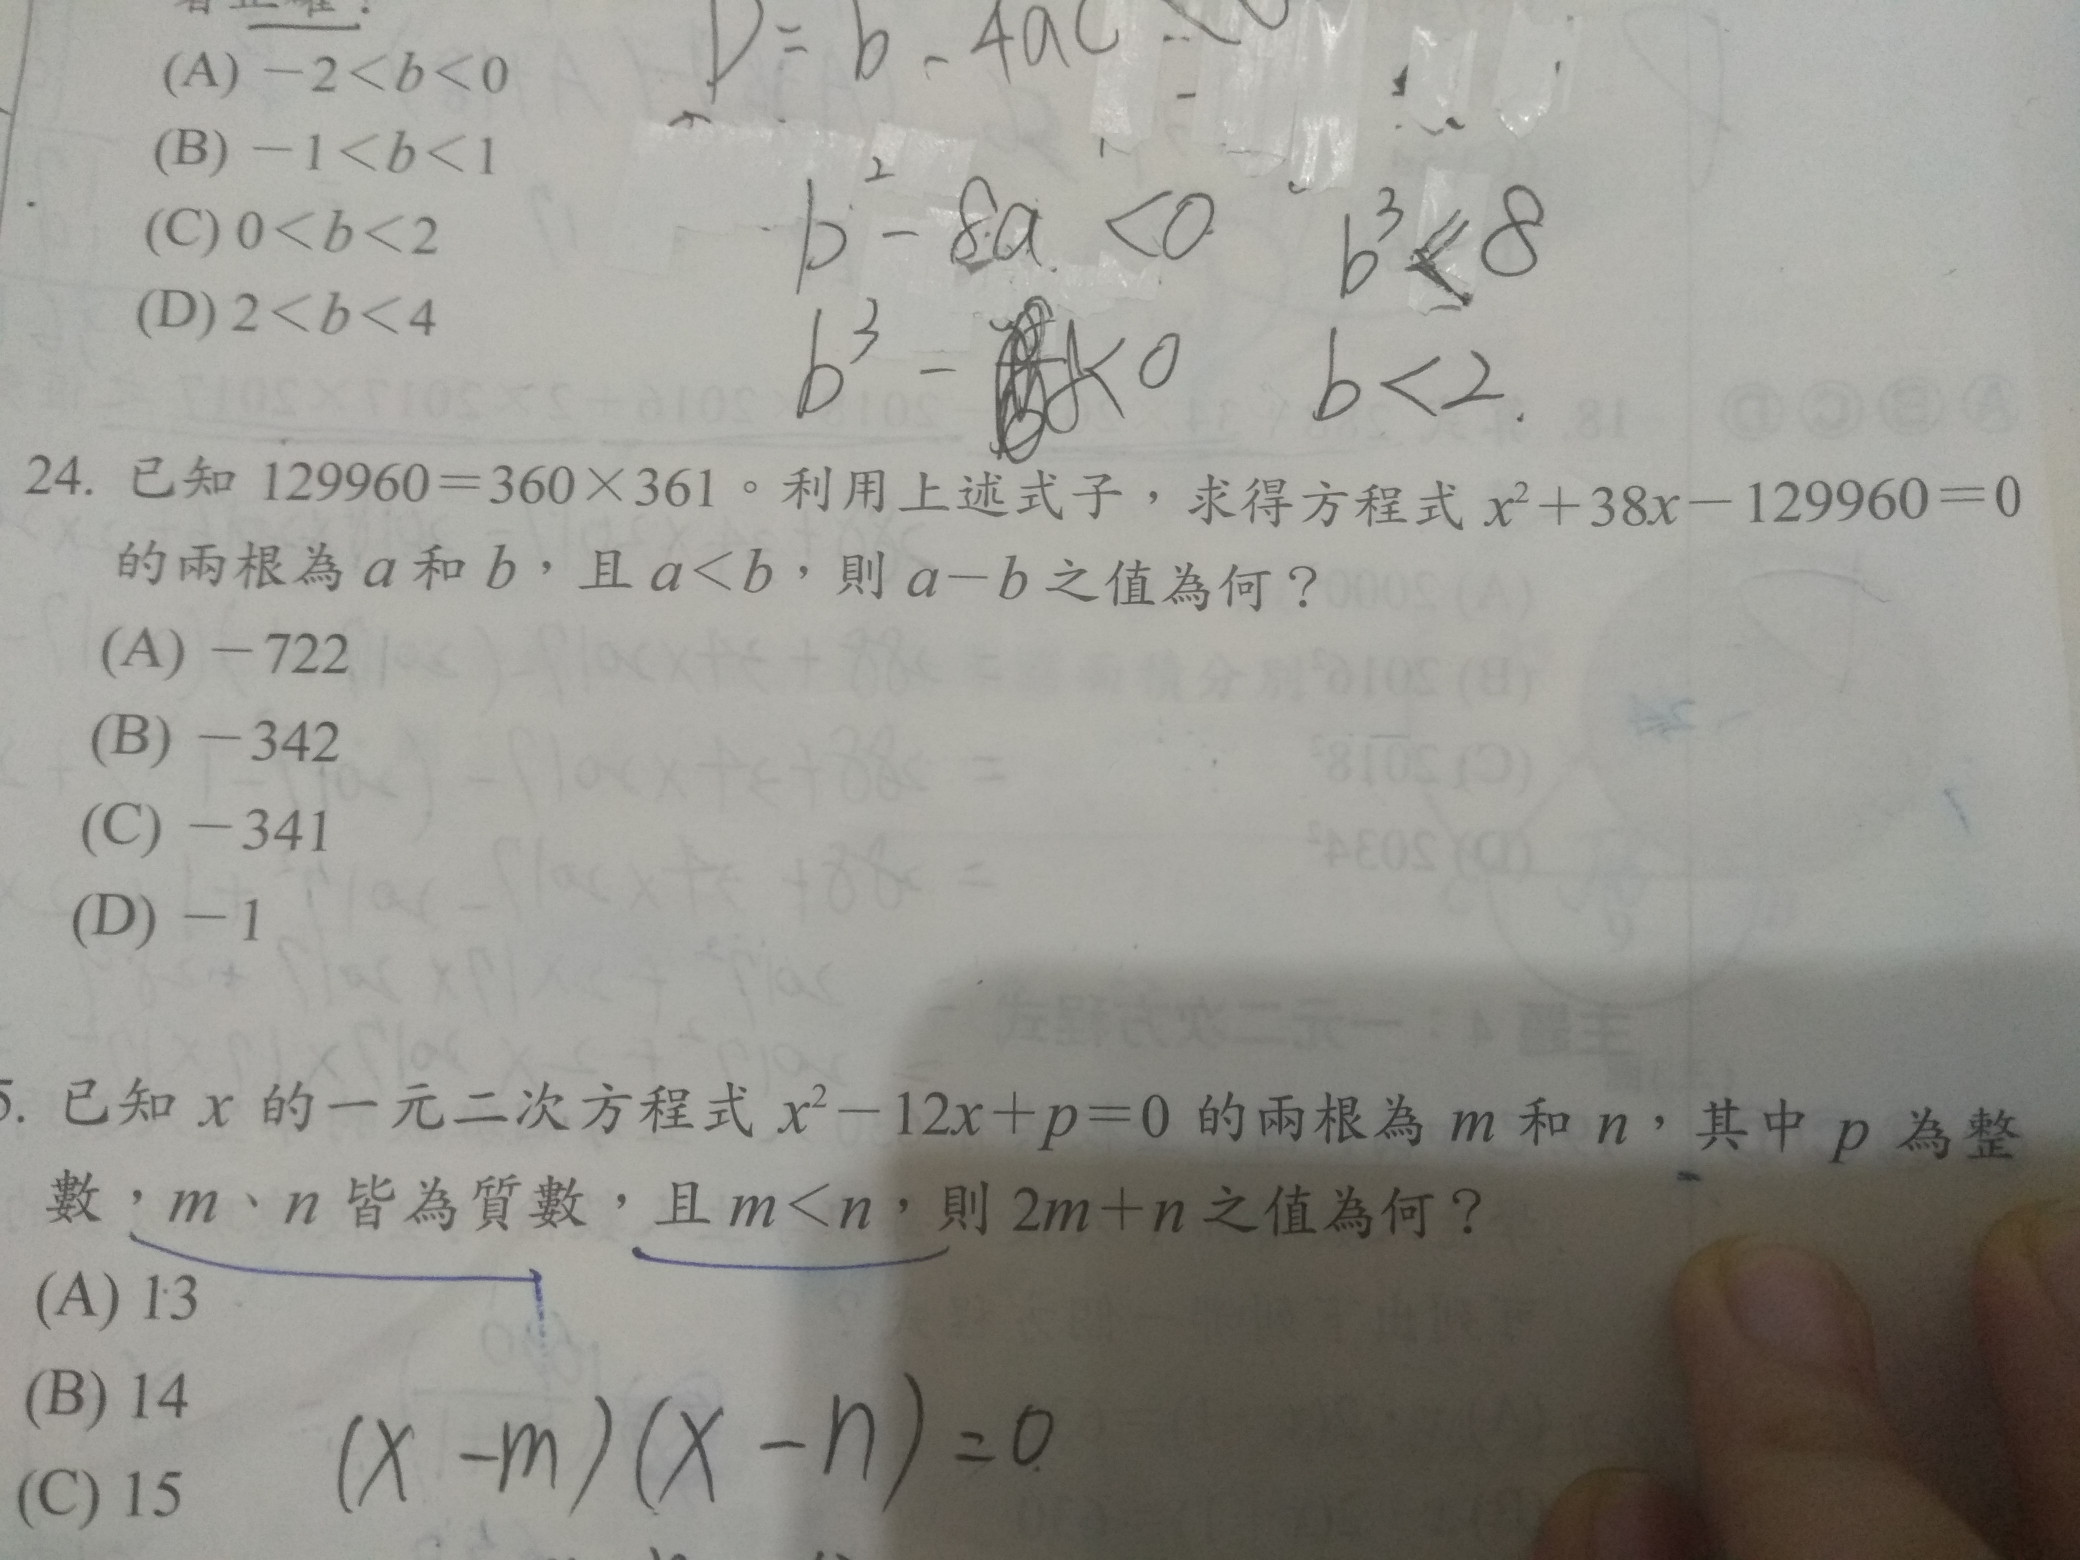 (A) －2＜b＜0
(B) －1＜b＜1
(C) 0＜b＜2
(D) 2＜b＜4
b² － 8a ＜0
b³ － 8＜0
b³ ＜ 8
b＜2.
24. 已知 129960＝360×361。利用上述式子，求得方程式 x²＋38x－129960＝0
的兩根為 a 和 b，且 a＜b，則 a－b 之值為何？
(A) －722
(B) －342
(C) －341
(D) －1
5. 已知 x 的一元二次方程式 x²－12x＋p＝0 的兩根為 m 和 n，其中 p 為整
數，m、n 皆為質數，且 m＜n，則 2m＋n 之值為何？
(A) 13
(B) 14
(C) 15
(x －m)(x －n)＝0